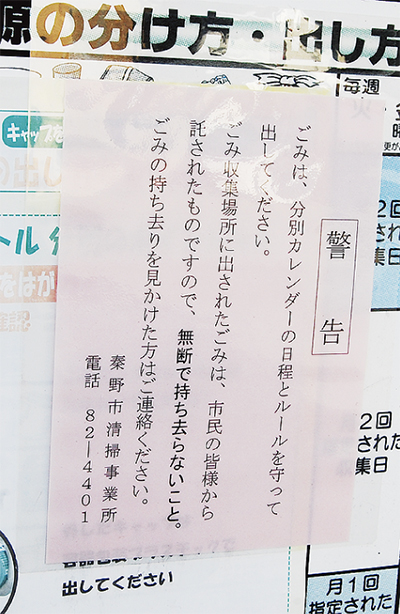 源の分け方・出し方
毎週
キャップを
の出し
トル
をはが
警告
ごみは、分別カレンダーの日程とルールを守って
出してください。
ごみ収集場所に出されたごみは、市民の皆様から
託されたものですので、無断で持ち去らないこと。
ごみの持ち去りを見かけた方はご連絡ください。
秦野市清掃事業所
電話 82―4401
2回
され
集日
2回
された
集日
出してください
月1回
指定された